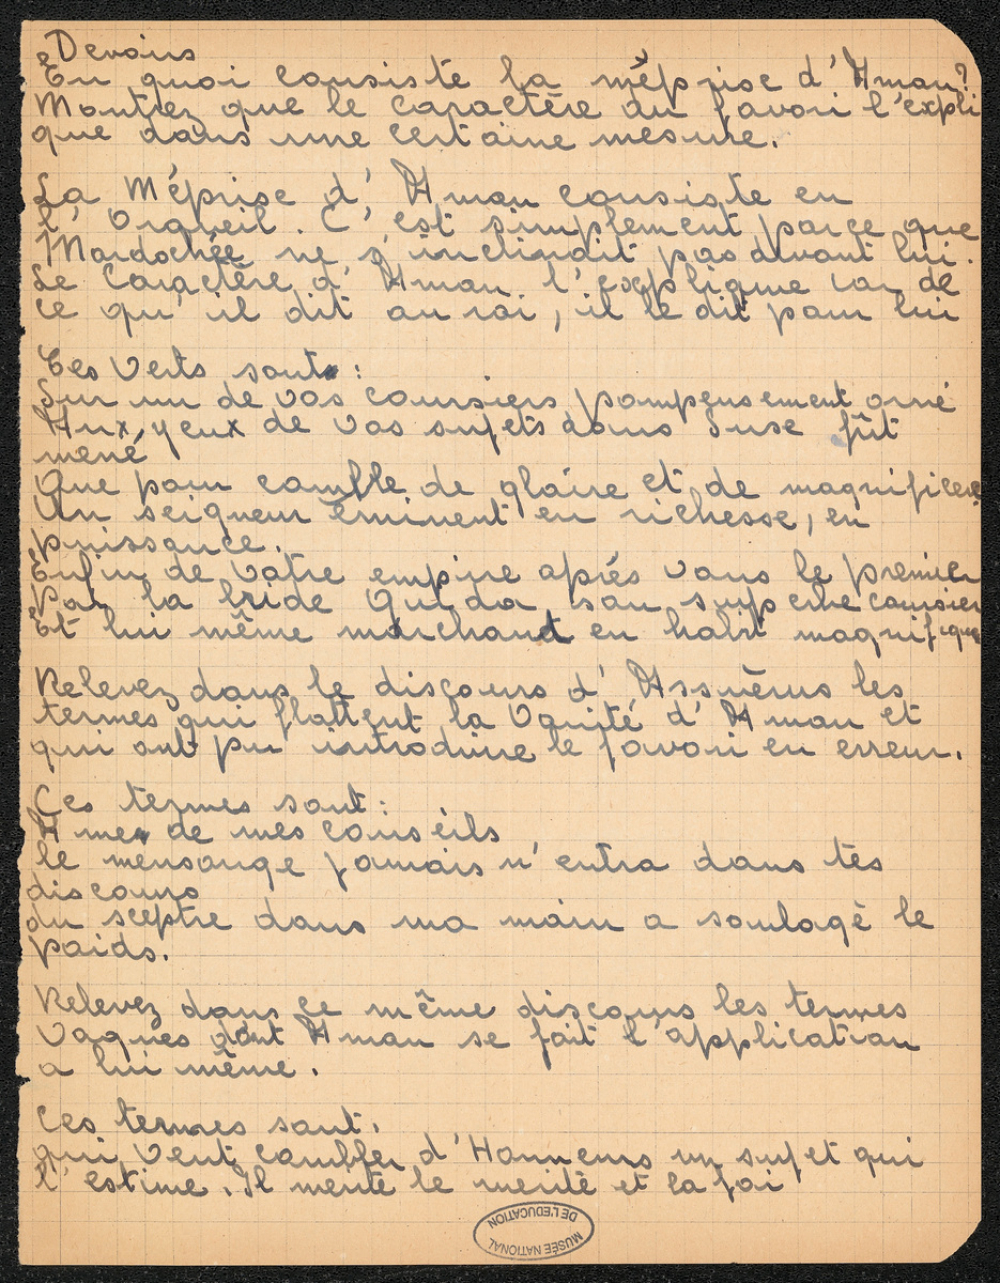 Devoirs
En quoi consiste la méprise d'Aman?
Montrez que le caractère du favori l'expli
que dans une certaine mesure.
La Méprise d'Aman consiste en
l'Orgueil. C'est simplement parce que
Mardochée ne s'inclindit pas devant lui.
Le Caractère d'Aman l'explique car de
ce qu'il dit au roi, il le dit pour lui
Ces Verts sont :
Sur un de vos coursiers pompeusement orné
Aux yeux de vos sujets dans Suse fût
mené
Que pour comble de gloire et de magnificence
Un seigneur éminent en richesse, en
puissance.
Enfin de votre empire après vous le premier
Par la bride Guida son superbe coursier
Et lui même marchant en habit magnifique
Relevez dans le discours d'Assuérus les
termes qui flattent la Vanité d'Aman et
qui ont pu introduire le favori en erreur.
Ces termes sont :
Ame de mes conseils
le mensonge jamais n'entra dans tes
discours
du sceptre dans ma main a soulagé le
poids.
Relevez dans ce même discours les termes
Vagues dont Aman se fait l'application
a lui même.
Ces termes sont.
qui Veut combler d'Honneurs un sujet qui
l'estime. Il merite le merite et la foi
MUSÉE NATIONAL
DE L'ÉDUCATION